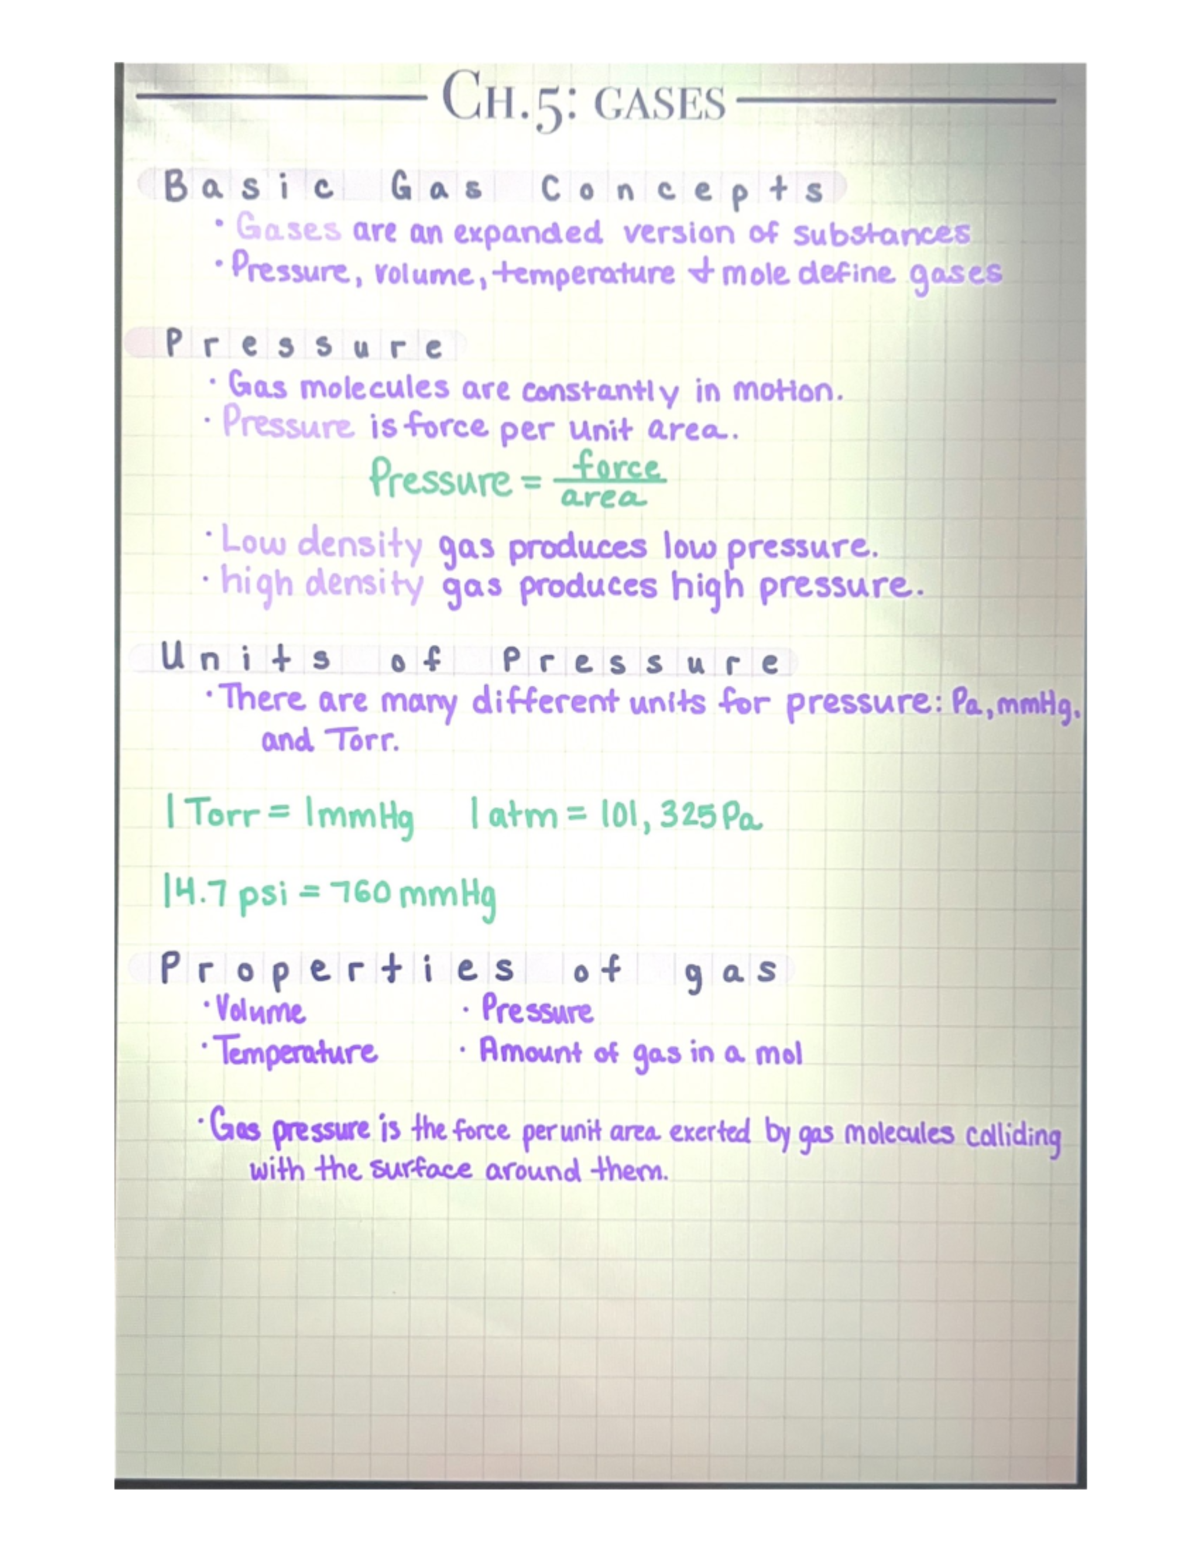 CH.5: GASES
Basic Gas Concepts
· Gases are an expanded version of substances
· Pressure, volume, temperature & mole define gases
Pressure
· Gas molecules are constantly in motion.
· Pressure is force per unit area.
Pressure = force
area
· Low density gas produces low pressure.
· high density gas produces high pressure.
Units of Pressure
· There are many different units for pressure: Pa, mmHg,
and Torr.
1 Torr = 1mmHg 1 atm = 101, 325 Pa
14.7 psi = 760 mmHg
Properties of gas
· Volume · Pressure
· Temperature · Amount of gas in a mol
· Gas pressure is the force per unit area exerted by gas molecules colliding
with the surface around them.